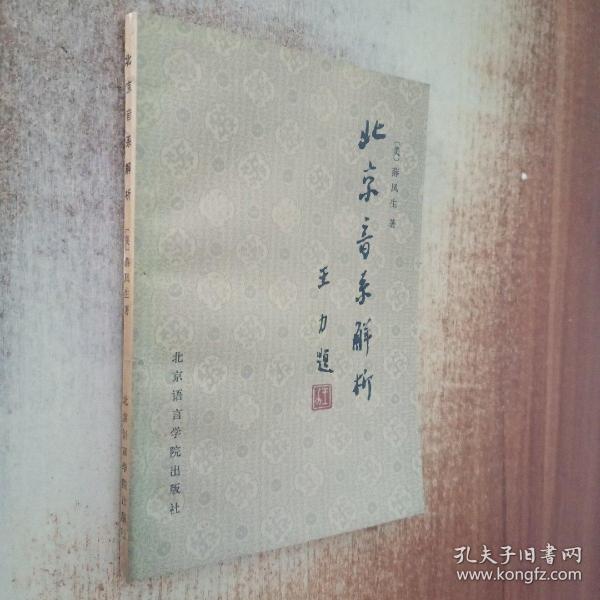 北京音系解析
〔美〕薛凤生 著
北京音系解析
王力题
北京语言学院出版社
〔美〕薛凤生著
北京语言学院出版社
孔夫子旧书网
www.kongfz.com